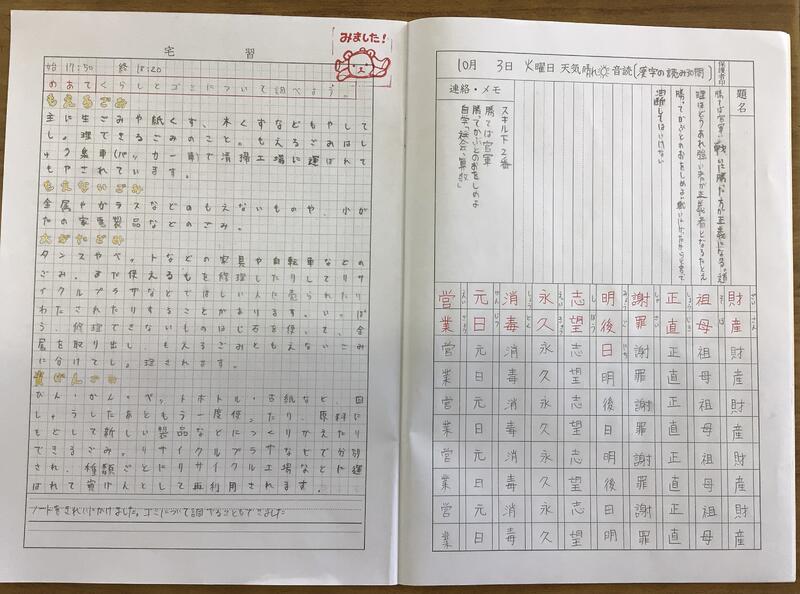 宅習
みました!
始 17:50 終 18:20
めあて くらしとゴミについて調べよう。
もえるごみ
主に生ごみや紙くず、木くずなどもやして
し。理できるごみのこと。もえるごみはし
ゅう集車(パッカー車)で清掃工場に運ばれて
もやされています。
もえないごみ
金属やガラスなどのもえないものや、小が
たの家電製品などのごみ。
大がたごみ
タンスやベットなどの家具や自転車などの
ごみ。まだ使えるもを修理したりしてリサ
イクルプラザなどでほしい人に売られたり
わたされたりすることがあります。いっぽ
う、修理できないものはじ石を使って、金
属を取り出し、もえるごみともえないごみ
に分けてし。理されます。
資げんごみ
びん・かん・ペットボトル・古紙など、回
しゅうしたあともう一度使ったり、原料に
もどして新しい製品などにつくりかえたり
できるごみ。リサイクルプラザなどで分別
され、種類ごとにリサイクル工場などに運
ばれて資げんとして再利用されます。
ノートをきれいにかけました。ゴミについて調べることもできました
10月 3日 火曜日 天気 晴れ 音読(漢字の読み30問)
保護者印
連絡・メモ
題名
勝てば官軍 戦いに勝った方が正義になる。道
理はどうあれ強い者が正義者となるたとえ
勝ってかぶとのおをしめよ 戦いに勝ったからと言って
油断してはいけない
スキル下 2番
勝てば官軍
勝ってかぶとのおをしめよ
自学「社会、算数」
財産 財産 財産 財産 財産
祖母 祖母 祖母 祖母 祖母
正直 正直 正直 正直 正直
謝罪 謝罪 謝罪 謝罪 謝罪
明後日 明後日 明後日 明
志望 志望 志望 志望 志望
永久 永久 永久 永久 永久
消毒 消毒 消毒 消毒 消毒
元日 元日 元日 元日 元日
営業 営業 営業 営業 営業